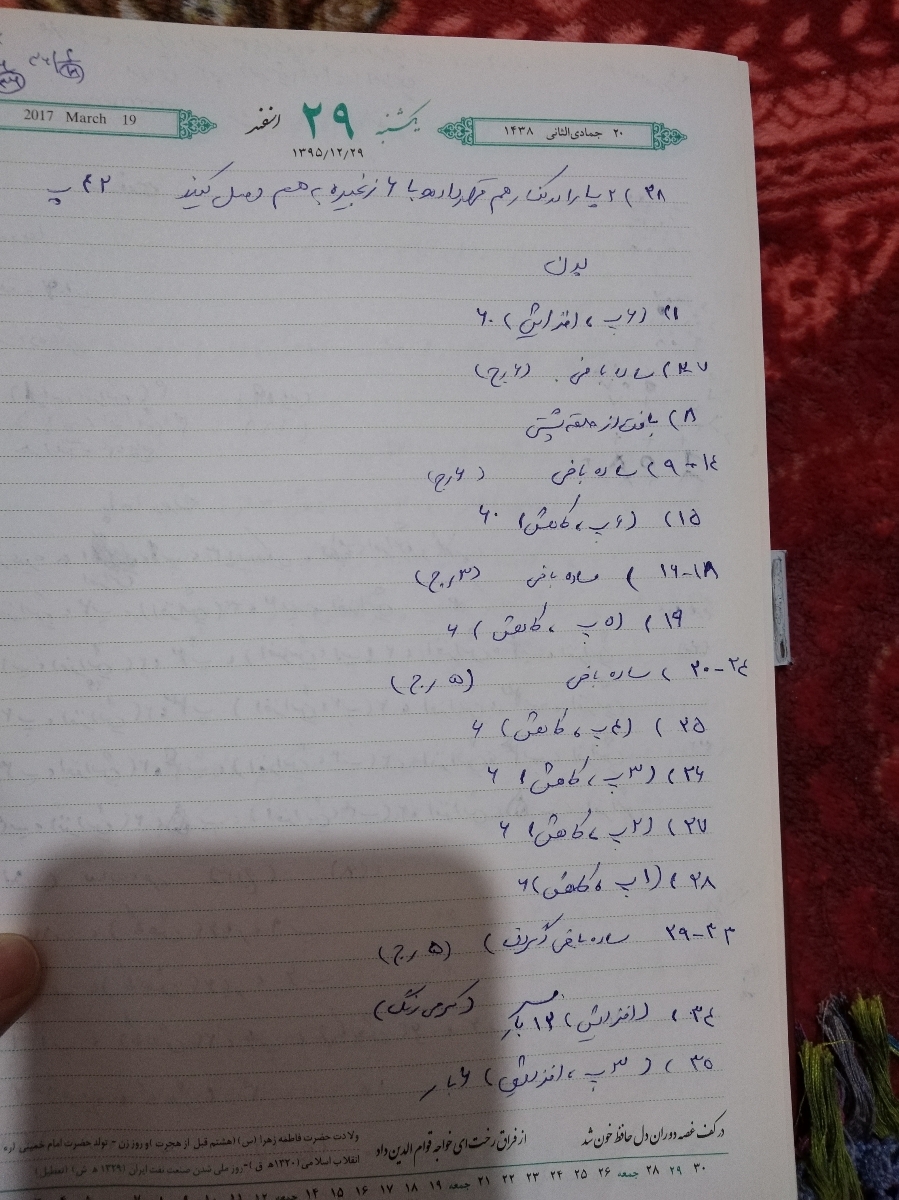 2017 March 19
یکشنبه ۲۹ اسفند
۲۰ جمادی‌الثانی ۱۴۳۸
۱۳۹۵/۱۲/۲۹
۳۸) ۲ پا را در کنار هم قرار داده و با ۶ زنجیره به هم وصل کنید ۴۲ پ
بدن
۱) (۶پ، افزایش) ۶۰
۲-۷) ساده بافی (۶رج)
۸) بافت از حلقه پشتی
۹-۱۴) ساده بافی (۶رج)
۱۵) (۶پ، کاهش) ۶۰
۱۶-۱۸) ساده بافی (۳رج)
۱۹) (۵پ، کاهش) ۶
۲۰-۲۴) ساده بافی (۵ رج)
۲۵) (۴پ، کاهش) ۶
۲۶) (۳پ، کاهش) ۶
۲۷) (۲پ، کاهش) ۶
۲۸) (۱پ، کاهش) ۶
۲۹-۳۳ ساده بافی گردن) (۵ رج)
سر
۳۴) (افزایش) ۱۲ بار (کرمی رنگ)
۳۵) (۳پ، افزایش) ۶ بار
در کف غصه دوران دل حافظ خون شد از فراق رخت ای خواجه قوام الدین داد
ولادت حضرت فاطمه زهرا (س) (هشتم قبل از هجرت) و روز زن - تولد حضرت امام خمینی (ره)
انقلاب اسلامی (۱۳۲۰ ه ق) - روز ملی شدن صنعت نفت ایران (۱۳۲۹ ه ش) (تعطیل)
۳۰ ۲۹ ۲۸ جمعه ۲۶ ۲۵ ۲۴ ۲۳ ۲۲ ۲۱ جمعه ۱۹ ۱۸ ۱۷ ۱۶ ۱۵ ۱۴ جمعه ۱۲ ۱۱